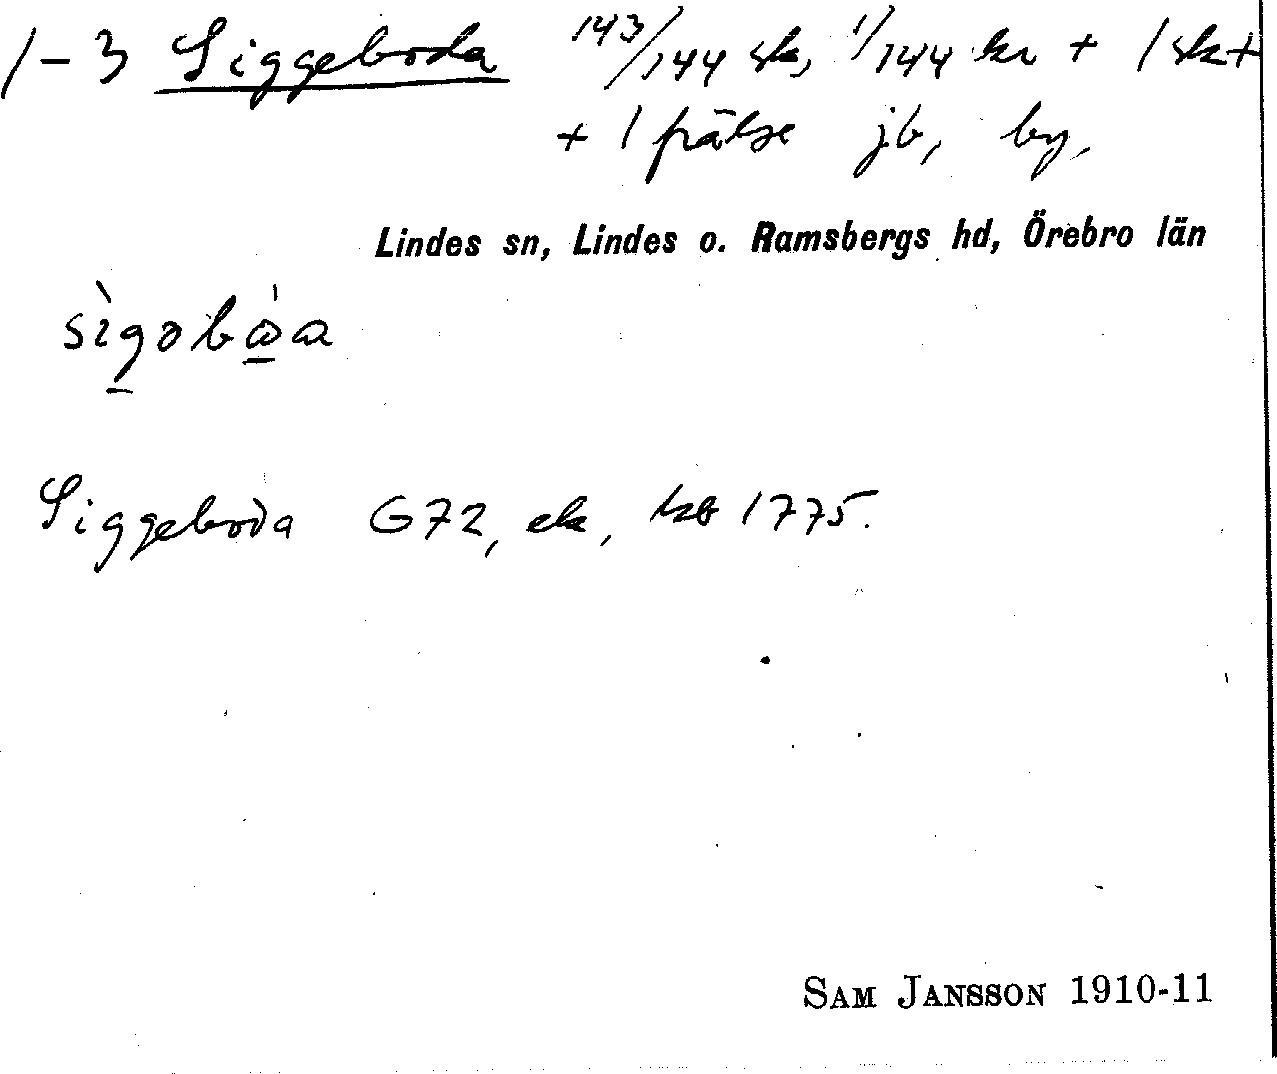 1-3 Siggeboda 143/144 sk, 1/144 kr + 1 sk +
+ 1 frälse jb, by.
Lindes sn, Lindes o. Ramsbergs hd, Örebro län
Siggeboda G72, ek, kb 1775.
SAM JANSSON 1910-11